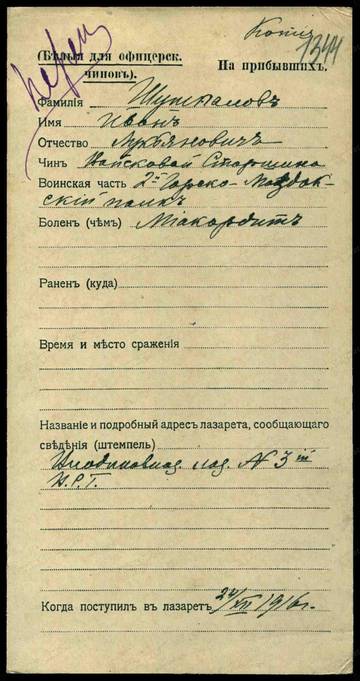 Копія
1344
(Бѣлыя для офицерск.
чиновъ).
На прибывшихъ.
Фамилія Шупкаловъ
Имя Иванъ
Отчество Лукьяновичъ
Чинъ Войсковой Старшина
Воинская часть 2й Горско-Моздок-
скій полкъ
Боленъ (чѣмъ) Міокардитъ
Раненъ (куда)
Время и мѣсто сраженія
Названіе и подробный адресъ лазарета, сообщающаго
свѣдѣнія (штемпель)
№ 3й
Когда поступилъ въ лазаретъ 24/XII 1916 г.